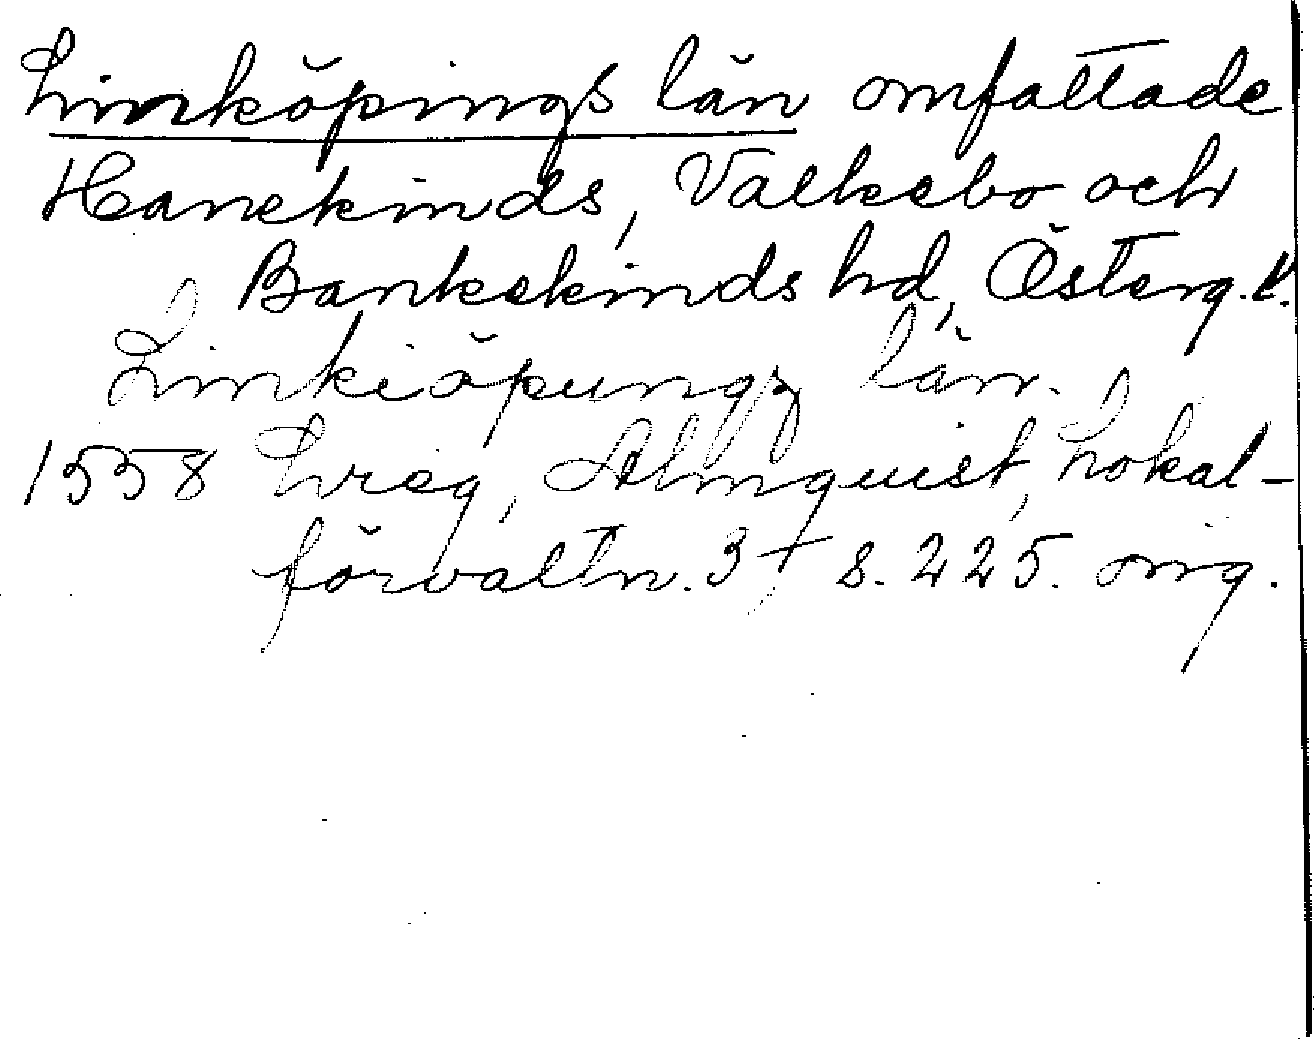 Linköpings län omfattade
Hanekinds, Valkebo och
Bankekinds hd, Österg. l.
Linkiöpungz län.
1558 Lreg, Almquist, Lokal-
förvaltn. 3 s. 225. orig.